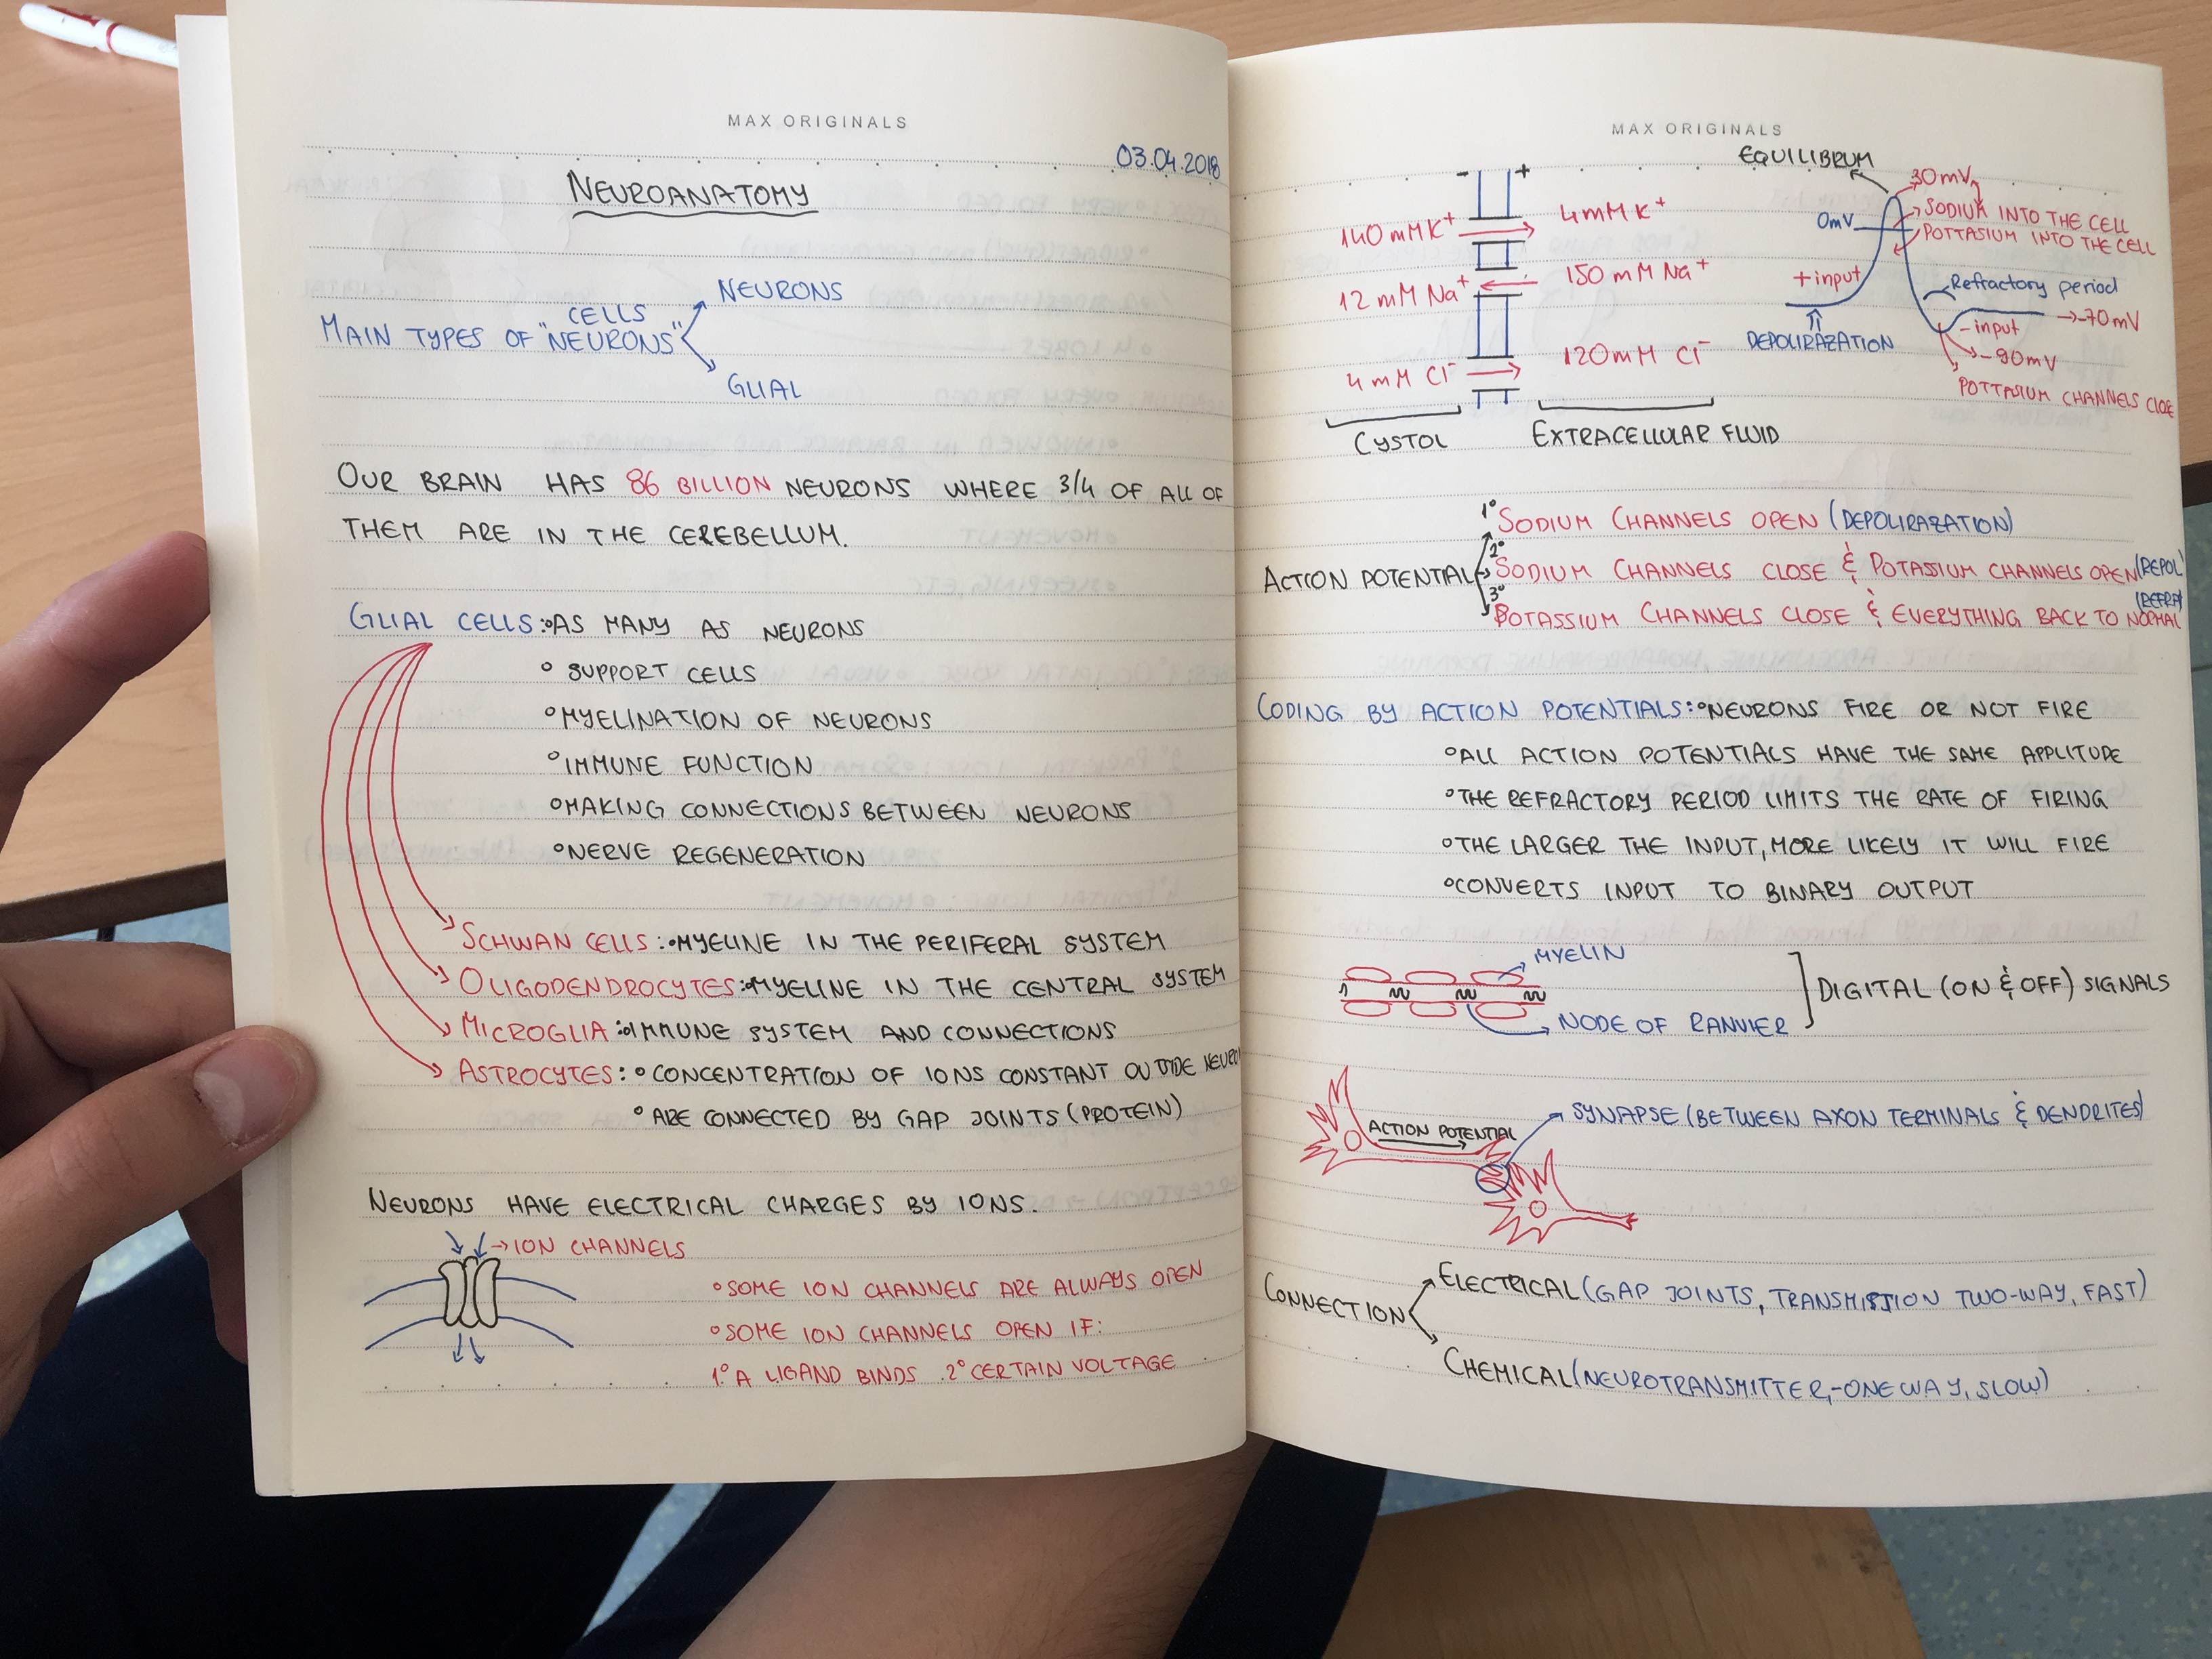 MAX ORIGINALS
03.04.2018
NEUROANATOMY
NEURONS
CELLS
MAIN TYPES OF "NEURONS"
GLIAL
OUR BRAIN HAS 86 BILLION NEURONS WHERE 3/4 OF ALL OF
THEM ARE IN THE CEREBELLUM.
GLIAL CELLS: °AS MANY AS NEURONS
° SUPPORT CELLS
°MYELINATION OF NEURONS
°IMMUNE FUNCTION
°MAKING CONNECTIONS BETWEEN NEURONS
°NERVE REGENERATION
SCHWAN CELLS: °MYELINE IN THE PERIFERAL SYSTEM
OLIGODENDROCYTES: °MYELINE IN THE CENTRAL SYSTEM
MICROGLIA: °IMMUNE SYSTEM AND CONNECTIONS
ASTROCYTES: °CONCENTRATION OF IONS CONSTANT
° ARE CONNECTED BY GAP JOINTS (PROTEIN)
NEURONS HAVE ELECTRICAL CHARGES BY IONS.
→ION CHANNELS
°SOME ION CHANNELS ARE ALWAYS OPEN
°SOME ION CHANNELS OPEN IF:
1° A LIGAND BINDS 2° CERTAIN VOLTAGE
MAX ORIGINALS
- +
140 mM K+ 4mM K+
12 mM Na+ 150 mM Na+
4 mM Cl- 120mM Cl-
CYSTOL EXTRACELLULAR FLUID
EQUILIBRUM
30mV
0mV
SODIUM INTO THE CELL
POTTASIUM INTO THE CELL
+input
Refractory period
→-70mV
DEPOLIRAZATION
-input
-90mV
POTTASIUM CHANNELS CLOE
1° SODIUM CHANNELS OPEN (DEPOLIRAZATION)
ACTION POTENTIAL 2° SODIUM CHANNELS CLOSE & POTASSIUM CHANNELS OPEN (REPOL)
3° POTASSIUM CHANNELS CLOSE & EVERYTHING BACK TO NORMAL
CODING BY ACTION POTENTIALS: °NEURONS FIRE OR NOT FIRE
°ALL ACTION POTENTIALS HAVE THE SAME APPLITUDE
°THE REFRACTORY PERIOD LIMITS THE RATE OF FIRING
°THE LARGER THE INPUT, MORE LIKELY IT WILL FIRE
°CONVERTS INPUT TO BINARY OUTPUT
MYELIN
DIGITAL (ON & OFF) SIGNALS
NODE OF RANVIER
SYNAPSE (BETWEEN AXON TERMINALS & DENDRITES)
ACTION POTENTIAL
ELECTRICAL (GAP JOINTS, TRANSMISSION TWO-WAY, FAST)
CONNECTION
CHEMICAL (NEUROTRANSMITTER,-ONE WAY, SLOW)